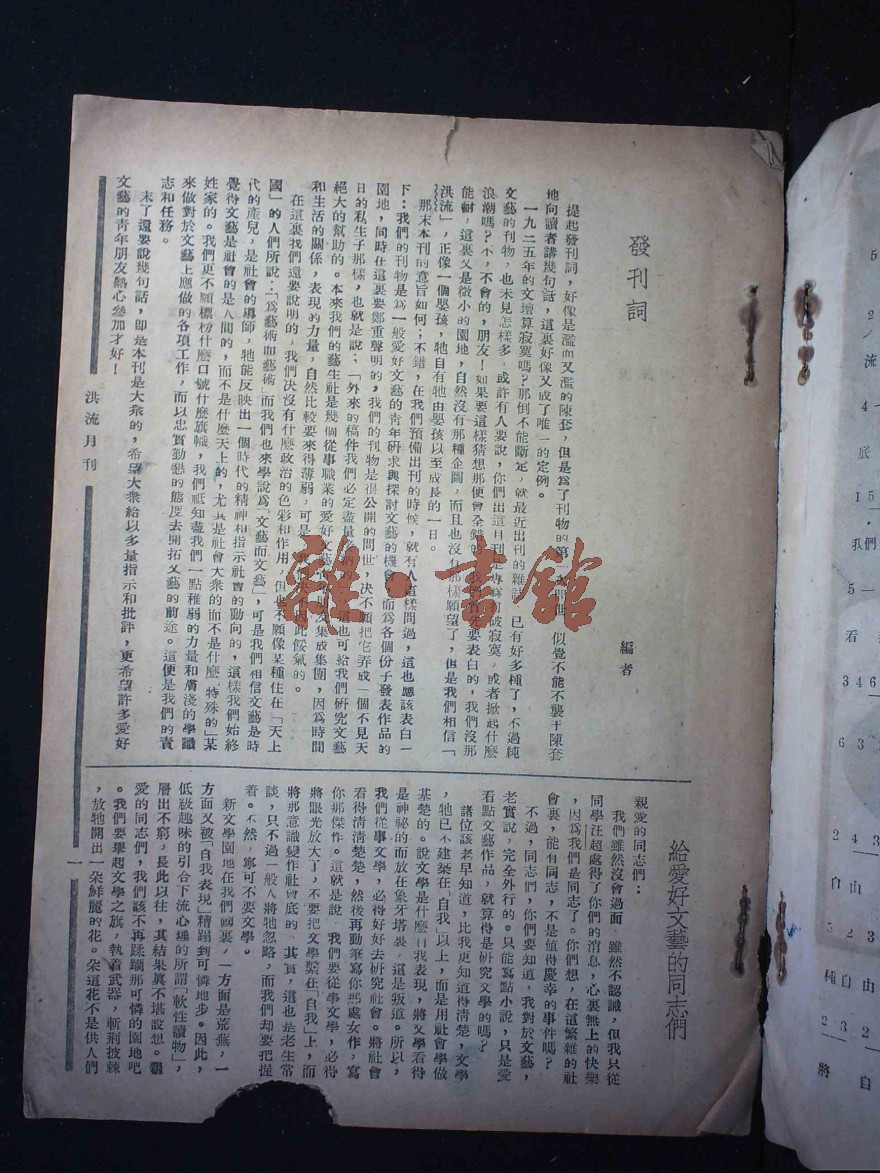 發刊詞
編者
提起發刊詞，好像是濫而又濫的陳套，但是爲了刊物的第一次問世，似覺不能不襲于陳套
地向讀者講幾句話，這裏好像又成了唯一的定例。
一九三五年的文壇算寂寞嗎？那倒不能斷定，就最近出刊的雜誌，已有好多種了，不過純
文藝的刊物，也未見怎樣多，或許有人要說，你們出這月刊是專爲打破寂寞，或者掀起什麼
浪潮嗎？不，不會的，朋友！如果要這樣猜想那便會全錯的，我們首先要表白的，我們沒那
能耐，這裏又是微小的園地，自然沒有那種企圖，而且也沒有那樣願望了，但是我們相信「
洪流」，正像一個嬰孩，牠自有牠由嬰孩以至成長的一日。
那末本刊的意旨如何；不錯，在我們預備出刊的時候，就有人這樣問過，這也應該表白一
下：我們的刊物是爲一般愛好文藝的青年研求與探討文藝的機會，而爲各個份子發表作品的
園地，同時在這裏要鄭重聲明的，我們的刊物是很公開的問世，決不願把它弄成一個不見天
日的私生子那樣，也就是說；「外來的稿件我們必定盡量 這也可給我們研究文藝
絕大的幫助的。本來我們的藝生社是幾個從事職業的愛好文藝 朋友集成集團，因爲時間
和生活的關係，表現的力量，自然比較要來得薄弱，可是 我們 因此餒氣的。
在這裏我們還要說明的，我們決沒有什麼政治的色彩和作用，但也不願像某種住在「天上
國」的人們所說：「爲藝術而藝術」而我們也來學說爲「文藝而文藝」，可是我們相信文藝是時
代的產兒，是社會的導師，牠能反映出一個時代的精神和指示社會的動向的，這樣我們始終
覺得文藝是社會的是人間的，而不是什麼天上的，尤其是社會大衆的而不是什麼「特殊的」某
姓家的。我們更不願標榜什麼口號什麼旗幟，我們祇知盡我們一點稚弱的力量和膚淺的學識
來做對於文藝上應做的各項工作，而以忠實勤懇的態度去開拓文藝的前途。這便是我們的責
志和任務。
末了還要說幾句話，即是本刊是大衆的，希望大衆給以多量指示和批評，更希望許多愛好
文藝的青年朋友熱心參加才好！
給愛好文藝的同志們
親愛的同志們：
我們雖然沒會過面，雖然不認識，但我只從
同學汪超處得了你們的消息，心裏無上的快樂
，因爲我們是同志了。你們想，在這繁雜的社
會裏，能有同志，不是值得慶幸的事件嗎？
不過，同志們，你們要知道，我對於文藝，
老實說，完全外行的。只能寫點小說，只是愛
看點文藝作品，就算得是研究文學的嗎？
諸位該老早知道，比我更知道得清楚，文學
，牠已不建築在「自我」以上，而是用社會學做
基楚的。說文學是什麼自我表現，將文學看得
是神祕的而放在象牙塔裏，這是叛道。所以，
我們從事文學，必得好好去研究社會。將社會
看得清清楚楚，然後再動筆寫你那處女作，寫
你那傑作。這就是說，我們要從事文學，必得
將眼光放大了，不要把文學繫在「自我」上，而
將那意識變作社會底的。其實，這也是老生常
談，只不過一般人將牠忽略，而我們却要把握
着。不然，寧可不要文學。
新文學園地在我們國裏，一方面是荒蕪，一
方面又被「自我表現」糟蹋到可憐地步。因此，
低級趣味的引合下流心理的所謂「軟性讀物」，
層出不窮，長此以往，其結果眞不堪設想。親
愛的同志們，我們該不再蹂躪那可憐的園地吧
。我們要舉起文學之旗，執着武器，斬荆披棘
，放牠開出一朵鮮麗的花。朵這花不是供人們
洪流月刊
一
雜·書館
5
2
流
4
底
15
我們
5—
看
346
63
24
自由
523
種自由
232
將自